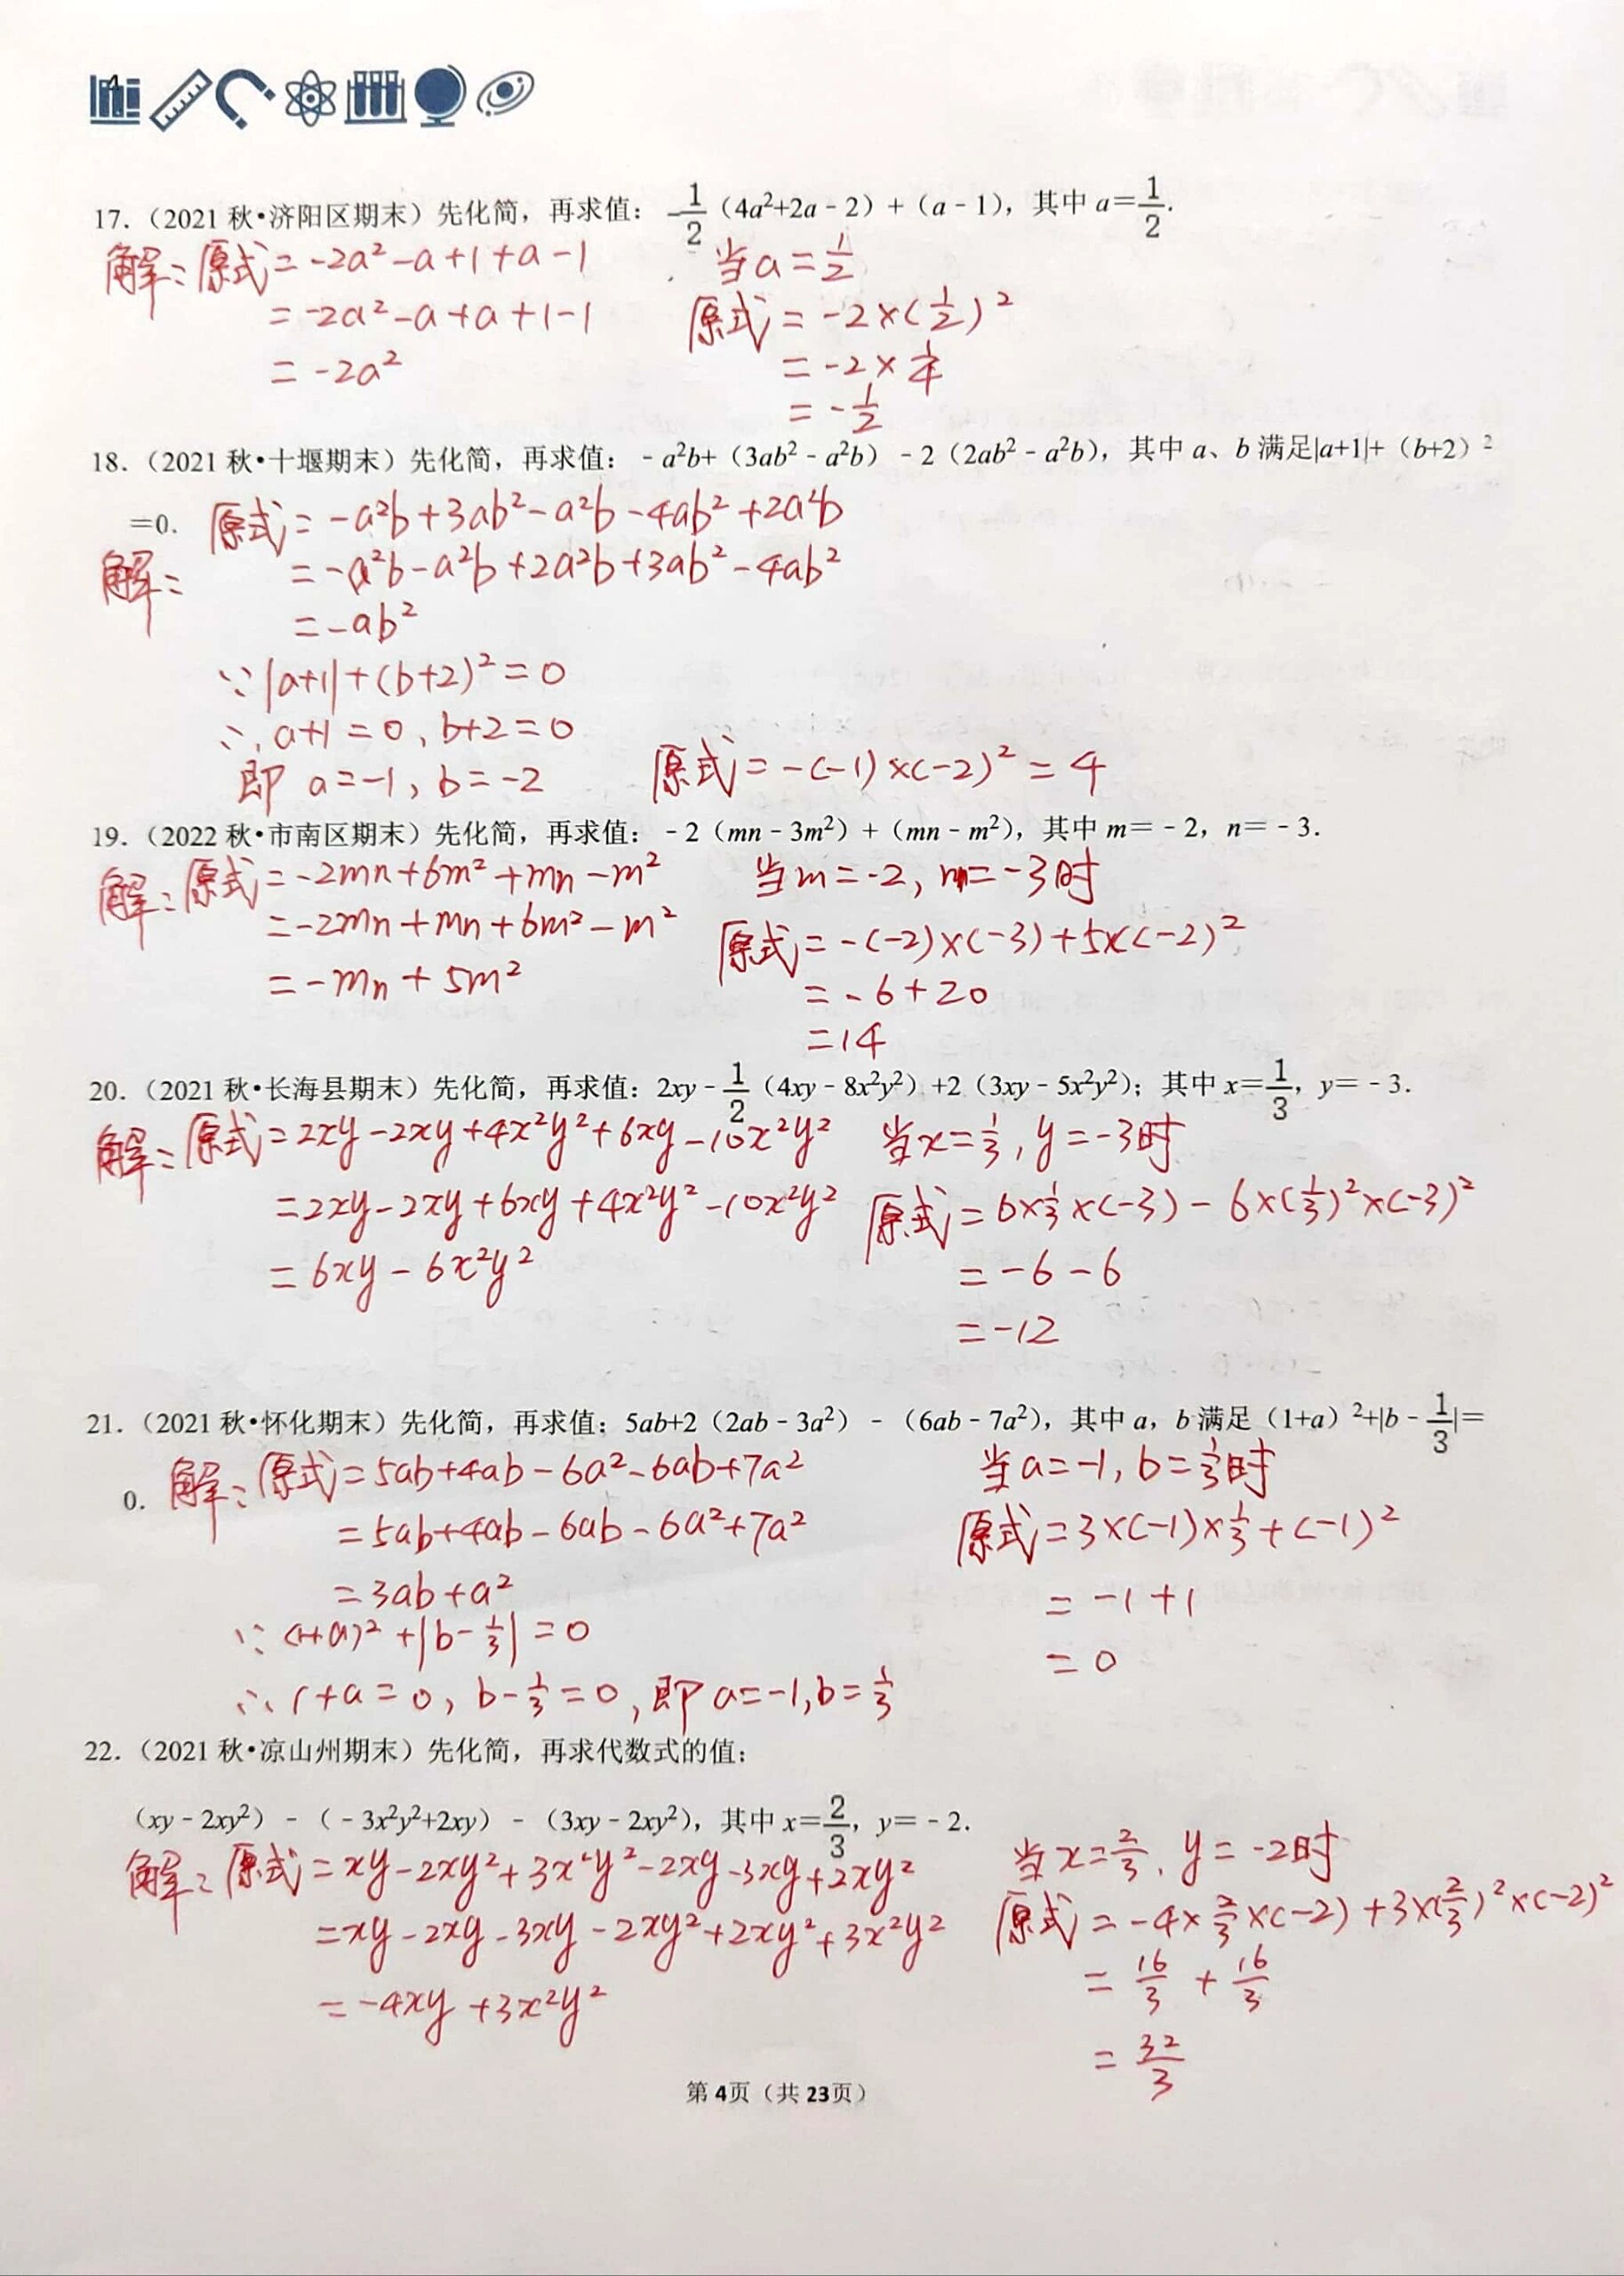 17.（2021秋•济阳区期末）先化简，再求值：-1/2（4a²+2a﹣2）+（a﹣1），其中a=1/2.
解：原式=-2a²-a+1+a-1
=-2a²-a+a+1-1
=-2a²
当a=1/2
原式=-2×(1/2)²
=-2×1/4
=-1/2
18.（2021秋•十堰期末）先化简，再求值：﹣a²b+（3ab²﹣a²b）﹣2（2ab²﹣a²b），其中a、b满足|a+1|+（b+2）²
=0.
解：
原式=-a²b+3ab²-a²b-4ab²+2a²b
=-a²b-a²b+2a²b+3ab²-4ab²
=-ab²
∵|a+1|+(b+2)²=0
∴a+1=0,b+2=0
即a=-1,b=-2
原式=-(-1)×(-2)²=4
19.（2022秋•市南区期末）先化简，再求值：﹣2（mn﹣3m²）+（mn﹣m²），其中m=﹣2，n=﹣3.
解：原式=-2mn+6m²+mn-m²
=-2mn+mn+6m²-m²
=-mn+5m²
当m=-2,n=-3时
原式=-(-2)×(-3)+5×(-2)²
=-6+20
=14
20.（2021秋•长海县期末）先化简，再求值：2xy﹣1/2（4xy﹣8x²y²）+2（3xy﹣5x²y²）；其中x=1/3，y=﹣3.
解：原式=2xy-2xy+4x²y²+6xy-10x²y²
=2xy-2xy+6xy+4x²y²-10x²y²
=6xy-6x²y²
当x=1/3,y=-3时
原式=6×1/3×(-3)-6×(1/3)²×(-3)²
=-6-6
=-12
21.（2021秋•怀化期末）先化简，再求值：5ab+2（2ab﹣3a²）﹣（6ab﹣7a²），其中a，b满足（1+a）²+|b﹣1/3|=
0.
解：原式=5ab+4ab-6a²-6ab+7a²
=5ab+4ab-6ab-6a²+7a²
=3ab+a²
∵(1+a)²+|b-1/3|=0
∴1+a=0,b-1/3=0,即a=-1,b=1/3
当a=-1,b=1/3时
原式=3×(-1)×1/3+(-1)²
=-1+1
=0
22.（2021秋•凉山州期末）先化简，再求代数式的值：
（xy﹣2xy²）﹣（﹣3x²y²+2xy）﹣（3xy﹣2xy²），其中x=2/3，y=﹣2.
解：原式=xy-2xy²+3x²y²-2xy-3xy+2xy²
=xy-2xy-3xy-2xy²+2xy²+3x²y²
=-4xy+3x²y²
当x=2/3,y=-2时
原式=-4×2/3×(-2)+3×(2/3)²×(-2)²
=16/3+16/3
=32/3
第4页（共23页）